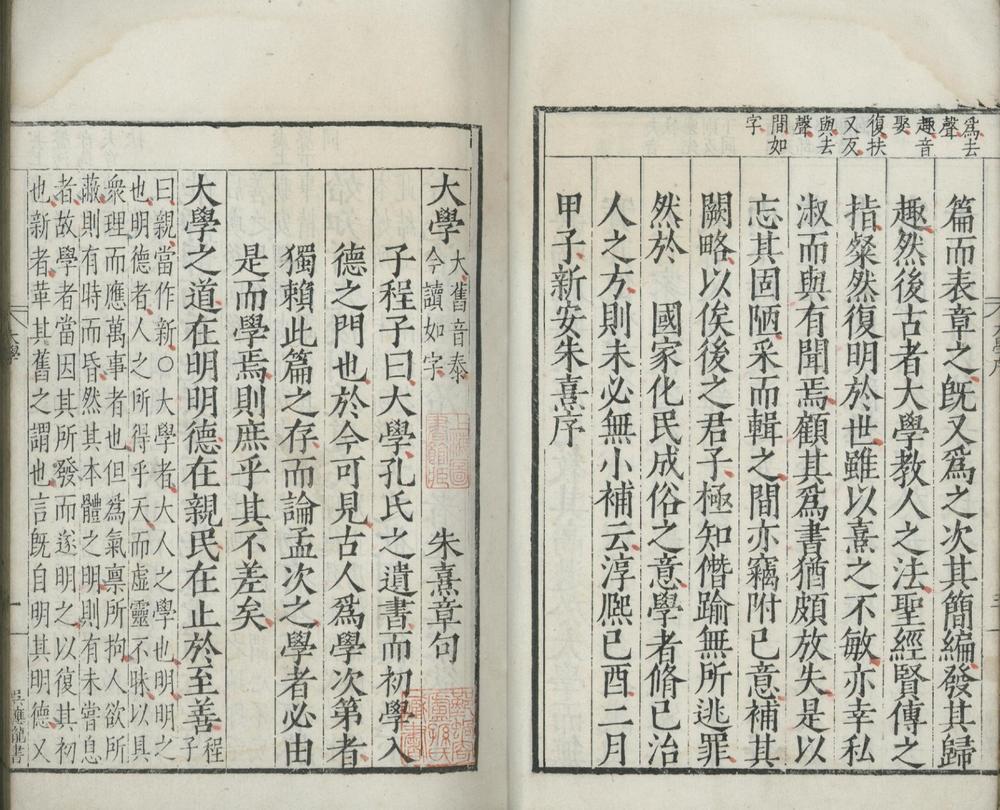 為去
聲
趣音
娶
復扶
又反
與去
聲
間如
字
篇而表章之旣又爲之次其簡編發其歸
趣然後古者大學教人之法聖經賢傳之
指粲然復明於世雖以熹之不敏亦幸私
淑而與有聞焉顧其爲書猶頗放失是以
忘其固陋采而輯之間亦竊附己意補其
闕略以俟後之君子極知僭踰無所逃罪
然於　國家化民成俗之意學者脩己治
人之方則未必無小補云淳熈己酉二月
甲子新安朱熹序
大學
大舊音泰
今讀如字
朱熹章句
子程子曰大學孔氏之遺書而初學入
德之門也於今可見古人爲學次第者
獨賴此篇之存而論孟次之學者必由
是而學焉則庶乎其不差矣
大學之道在明明德在親民在止於至善
程
子
曰親當作新○大學者大人之學也明明之
也明德者人之所得乎天而虛靈不昧以具
衆理而應萬事者也但爲氣稟所拘人欲所
蔽則有時而昏然其本體之明則有未嘗息
者故學者當因其所發而遂明之以復其初
也新者革其舊之謂也言旣自明其明德又
大學
一
吳應龍書